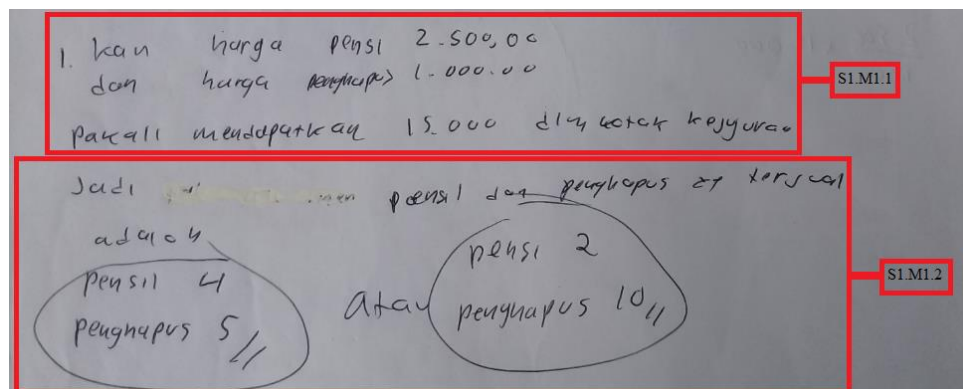 1. kan harga pensi 2.500,00
dan harga penghapus 1.000.00
S1.M1.1
pakali mendapatkan 15.000 dlm kotak kejyuran
Jadi pensil dan penghapus yg terjual
adalah
pensil 4
penghapus 5 //
atau
pensi 2
penghapus 10 //
S1.M1.2